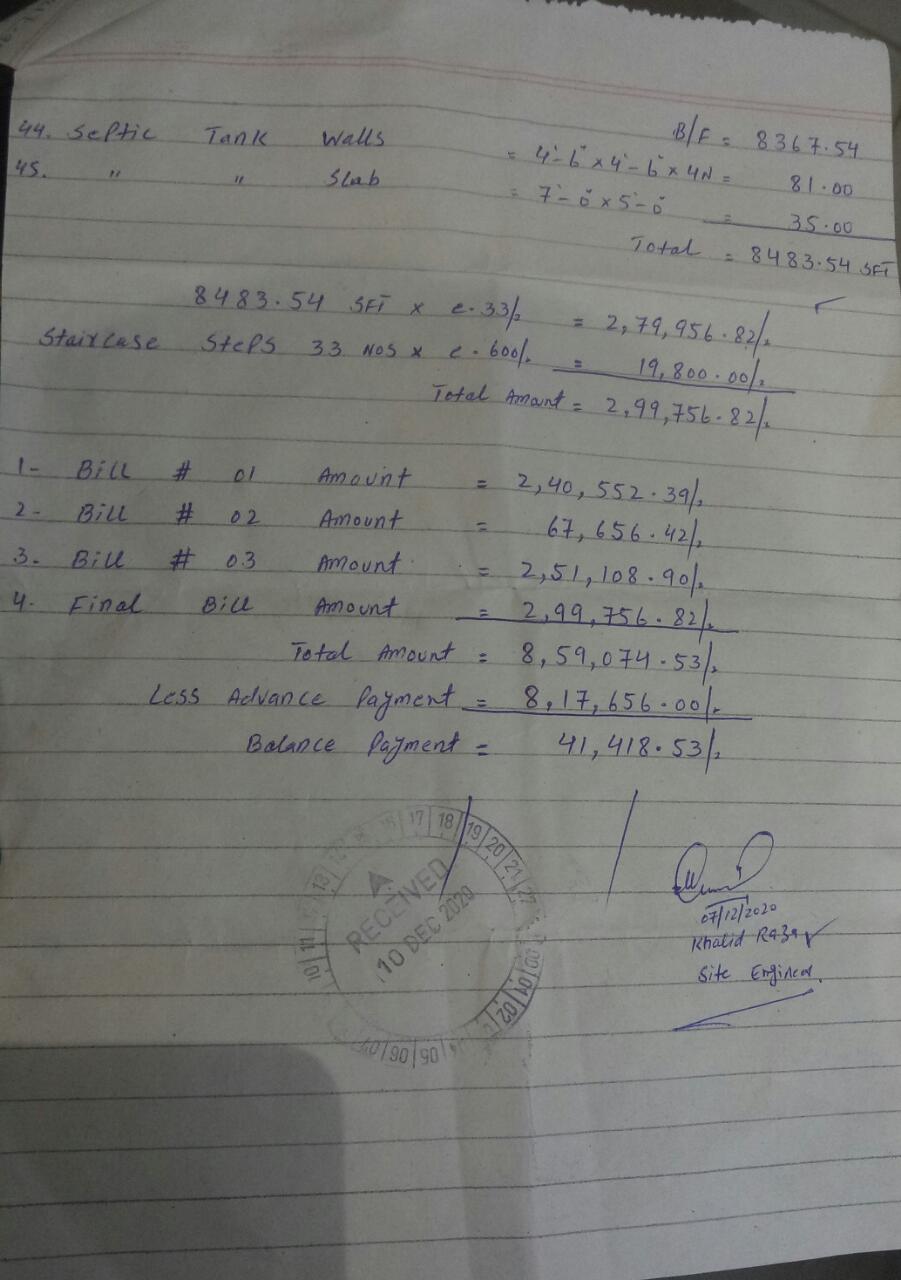 B/F = 8367.54
44. Septic Tank Walls = 4'-6" x 4'-6" x 4N = 81.00
45. " " Slab = 7'-0" x 5'-0" = 35.00
Total = 8483.54 SFT
8483.54 SFT x @.33/- = 2,79,956.82/-
Staircase Steps 33 Nos x @.600/- = 19,800.00/-
Total Amount = 2,99,756.82/-
1- Bill # 01 Amount = 2,40,552.39/-
2- Bill # 02 Amount = 67,656.42/-
3- Bill # 03 Amount = 2,51,108.90/-
4- Final Bill Amount = 2,99,756.82/-
Total Amount = 8,59,074.53/-
Less Advance Payment = 8,17,656.00/-
Balance Payment = 41,418.53/-
07/12/2020
Khalid Raza
Site Engineer
RECEIVED
10 DEC 2020
10 11 13 17 18 19 20 21 22 00 01 02 05 06 07